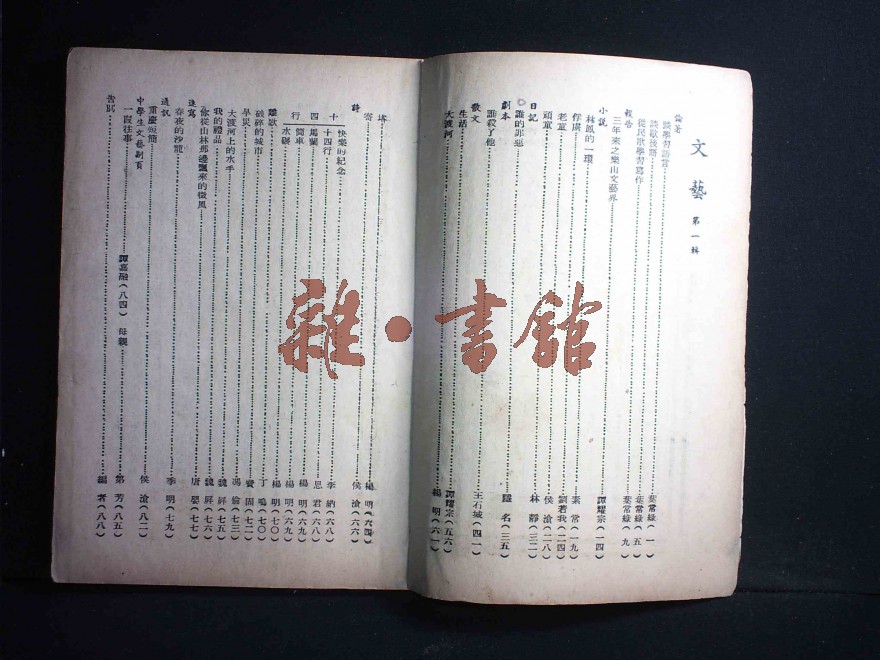 文藝 第一輯
論著
談學習語言……葉常綠(一)
談歌後語……葉常綠(五)
從民歌學習寫作……葉常綠(九)
報告
三年來之樂山文藝界……譚耀宗(一四)
小說
林鳳的一環……素常(一九)
作虞
老童……劉若我(二四)
頑童……侯滄(二八)
日記
誰的罪惡……林靜(三二)
劇本
誰殺了他……名(三五)
散文
生活……王石城(四一)
大渡河……譚耀宗(五六)
楊明(六一)
詩
寄……侯滄(六六)
楊明(六四)
十四行
快樂的紀念……李納(六八)
十四行……思君(六八)
場闌
筒車……楊明(六九)
水碾……楊明(六九)
離歌……丁鳴(七〇)
破碎的城市
旱災……馮倫(七三)
大渡河上的水手……魏屏(七五)
我的禮品……魏屏(七六)
你從山林那邊飄來的微風……唐嬰(七七)
速寫
春夜的沙龍……季明(七九)
通訊
重慶短簡……侯滄(八二)
中學生文藝副頁
一段往事……譚嘉融(八四) 母親……芳(八五)
告訴……編者(八八)
雜·書館